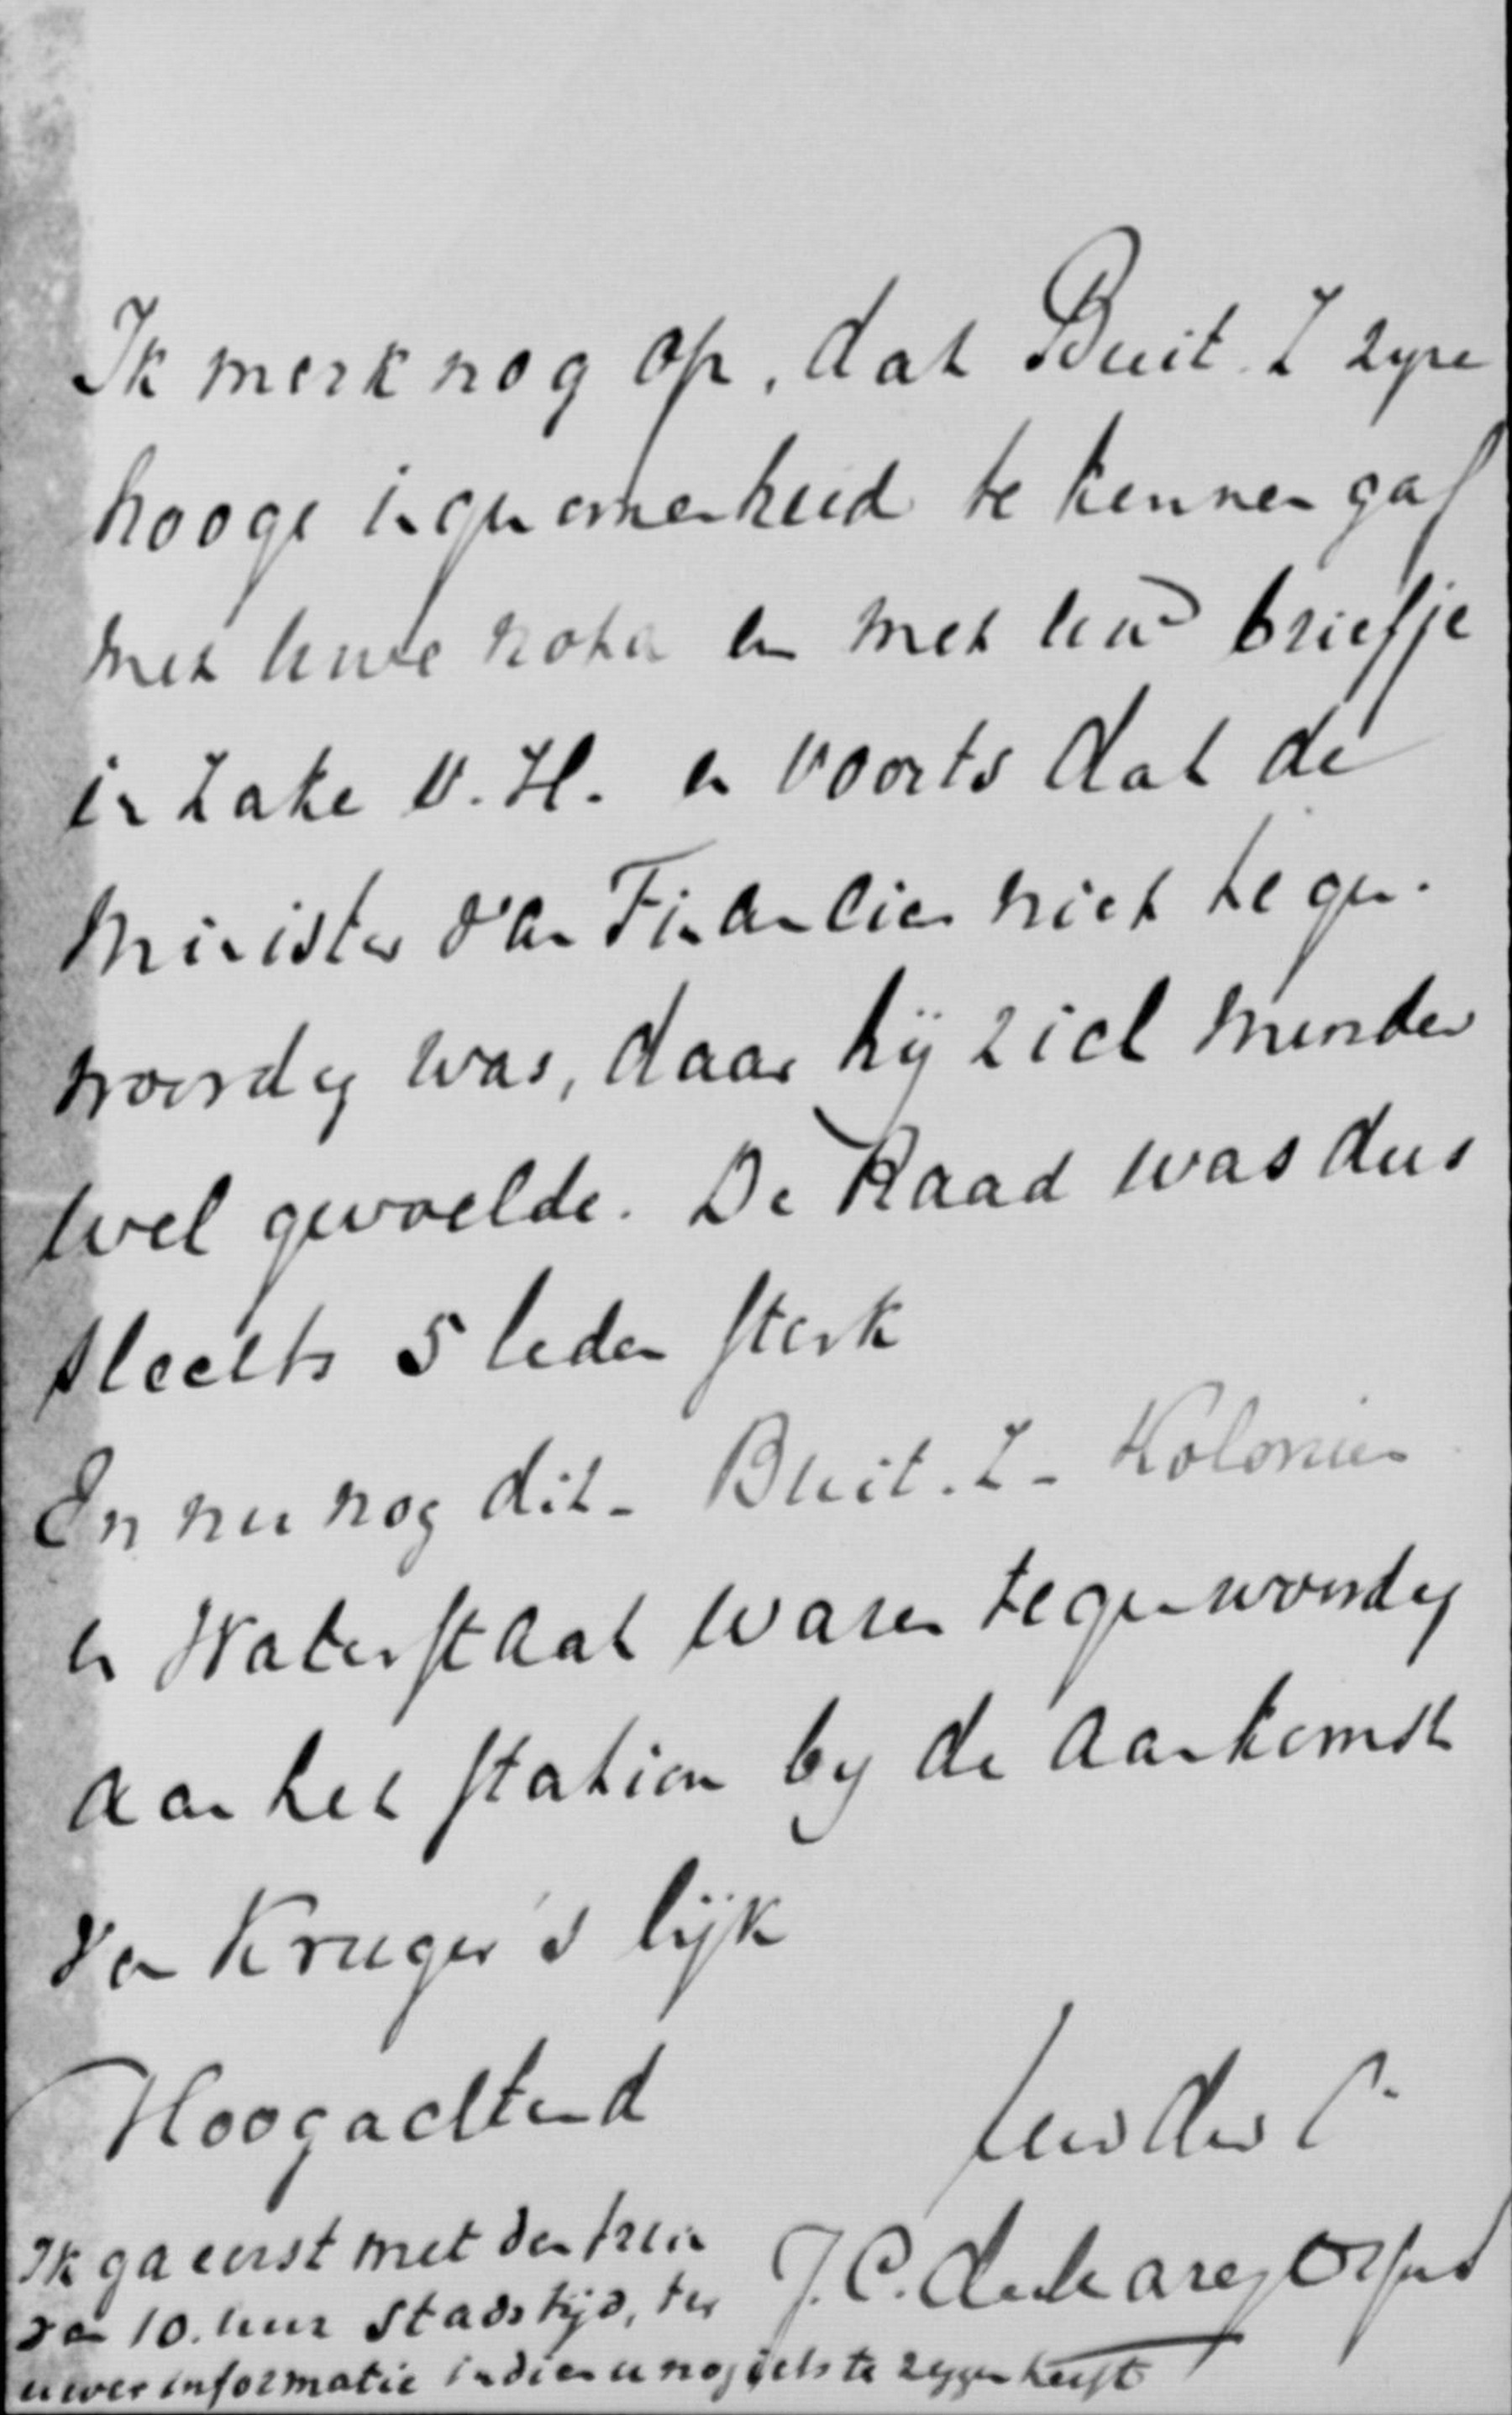 Ik merk nog op, dat Buit. Z zyne
hooge ingenomenheid te kennen gaf
met Uwe nota en met Uw briefje
in zake v. H. en voorts dat de
Minister van Financien niet tegen-
woordig was, daar hij zich minder
wel gevoelde. De Raad was dus
slechts 5 leden sterk
En nu nog dit - Buit. Z - Kolonien
en Waterstaat waren tegenwoordig
aan het station by de aankomst
van Kruger's lijk
Hoogachtend
Uw dw
J. C. de Marez Oyens
Ik ga eerst met den trein
van 10. uur Stadstijd, ter
uwer informatie indien u nog iets te zeggen heeft